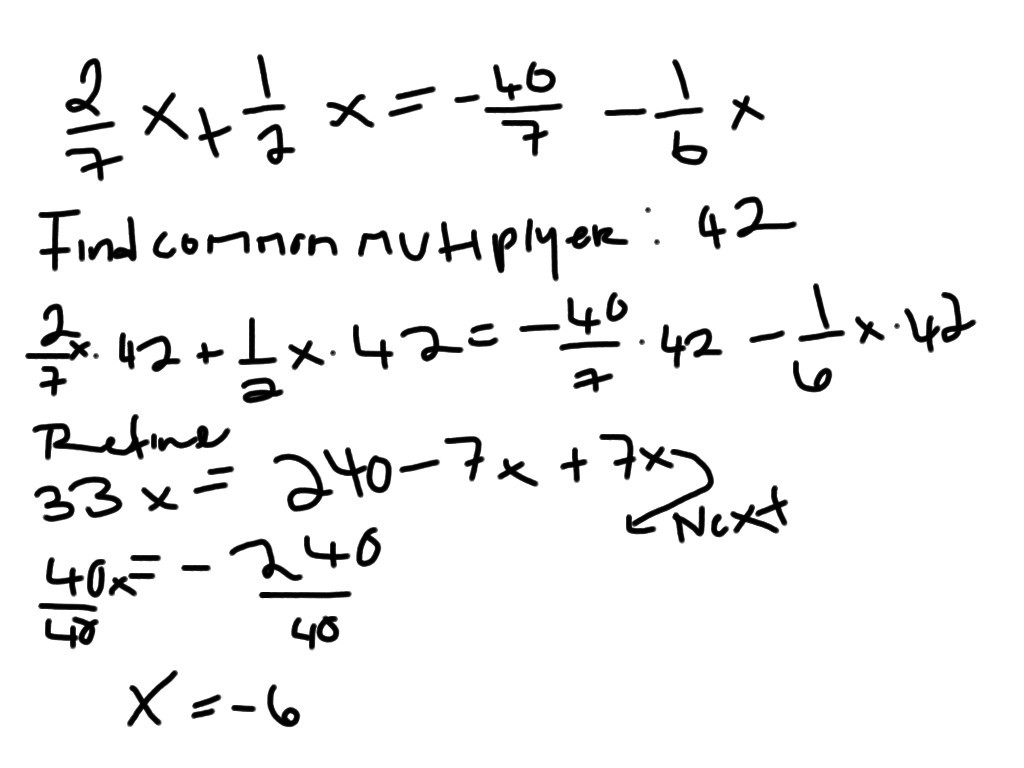 2/7 x + 1/2 x = - 40/7 - 1/6 x
Find common multiplyer : 42
2/7 x · 42 + 1/2 x · 42 = - 40/7 · 42 - 1/6 x · 42
Refine
33x = 240 - 7x + 7x
Next
40x/40 = - 240/40
x = -6